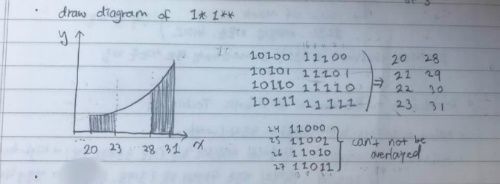 draw diagram of 1*1**
y
10100 11100
10101 11101
10110 11110
10111 11111
⇒
20 28
21 29
22 30
23 31
20 23 28 31 x
24 11000
25 11001
26 11010
27 11011
can't not be
overlayed